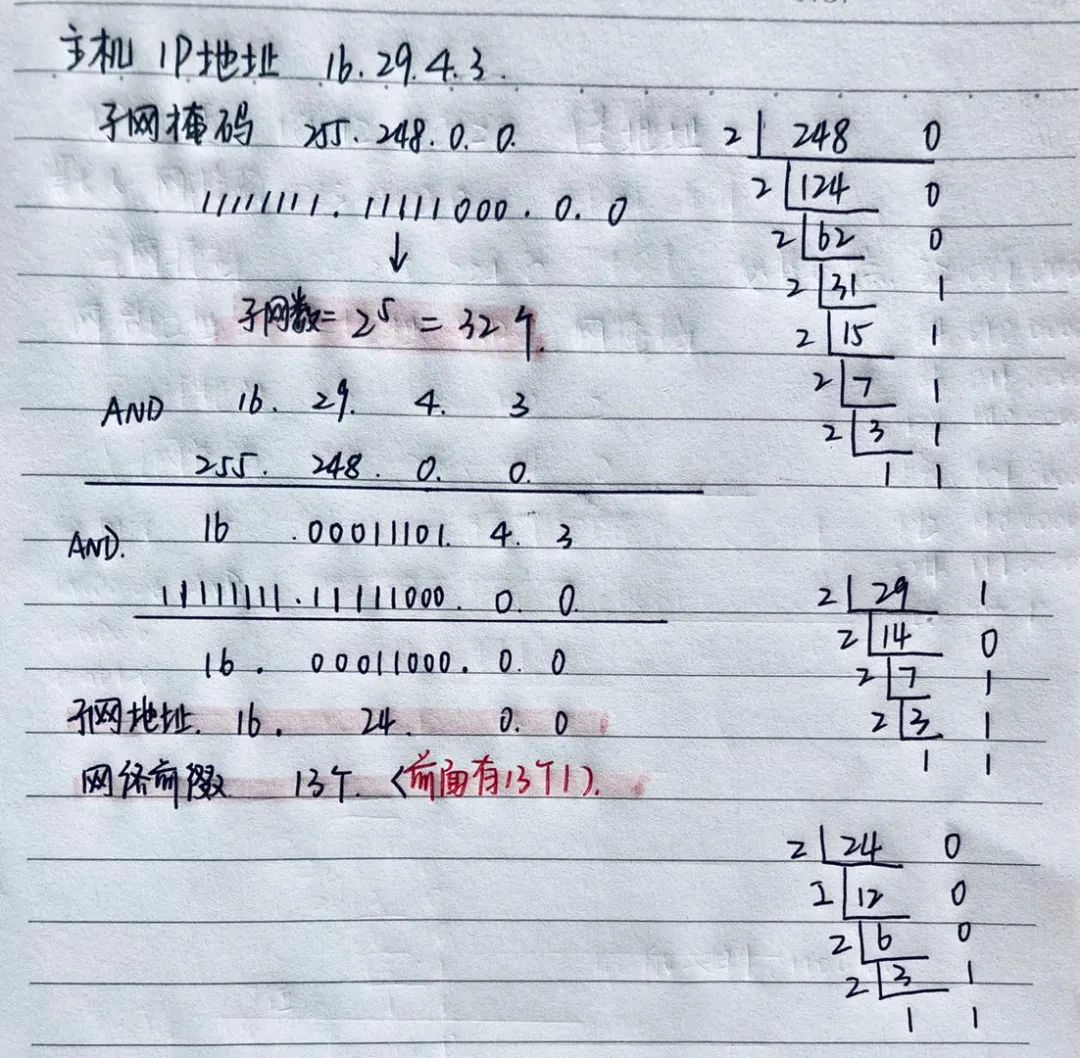 主机 IP地址 16.29.4.3.
子网掩码 255.248.0.0.
11111111.11111000.0.0
↓
子网数=2⁵=32个.
AND 16. 29. 4. 3
255. 248. 0. 0.
AND. 16 .00011101. 4. 3
11111111.11111000. 0. 0.
16. 00011000. 0. 0
子网地址. 16. 24. 0. 0
网络前缀 13个.(前面有13个1).
2 248 0
2 124 0
2 62 0
2 31 1
2 15 1
2 7 1
2 3 1
1 1
2 29 1
2 14 0
2 7 1
2 3 1
1 1
2 24 0
2 12 0
2 6 0
2 3 1
1 1